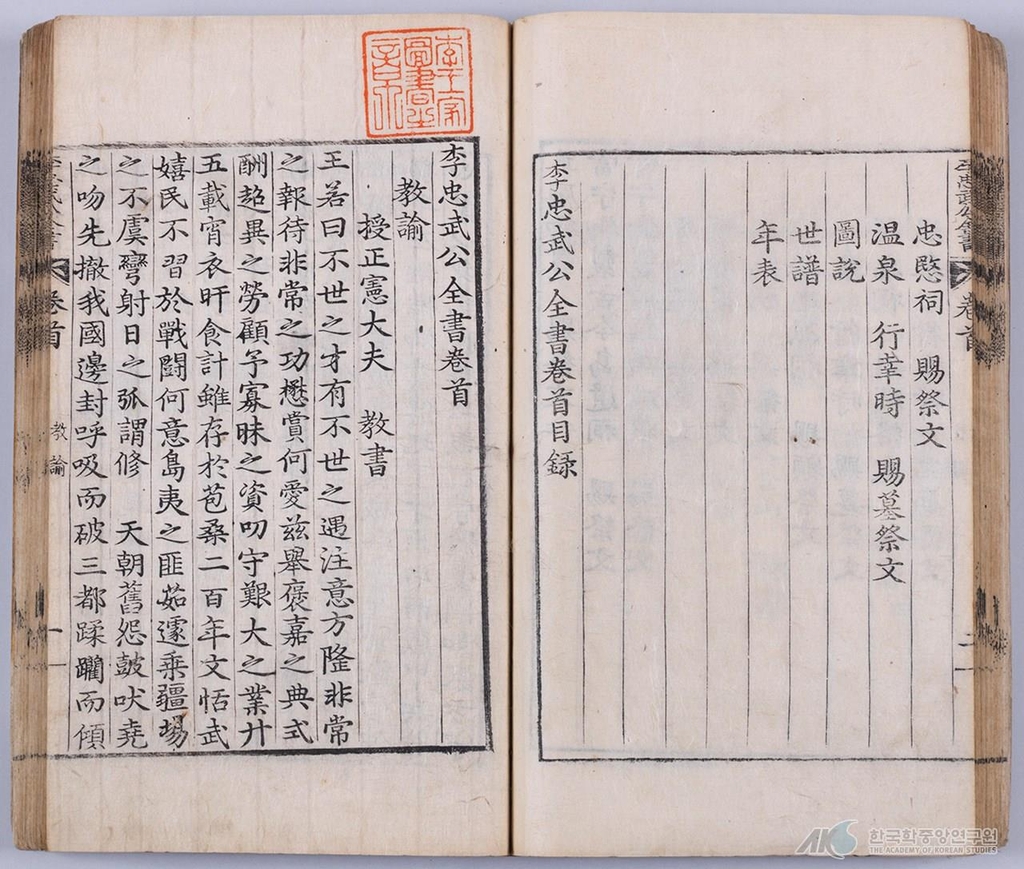 忠愍祠 賜祭文
溫泉 行幸時 賜墓祭文
圖說
世譜
年表
李忠武公全書卷首目録
李忠武公全書
卷首
李忠武公全書卷首
教諭
授正憲大夫 教書
王若曰不世之才有不世之遇注意方隆非常
之報待非常之功懋賞何愛玆舉褒嘉之典式
酬超異之勞顧予寡昧之資叨守艱大之業廾
五載宵衣旰食計雖存於苞桑二百年文恬武
嬉民不習於戰鬪何意島夷之匪茹遽乘疆場
之不虞彎射日之弧謂修 天朝舊怨鼓吠堯
之吻先撤我國邊封呼吸而破三都蹂躪而傾
卷首
教諭
一
李家圖書之章
한국학중앙연구원
THE ACADEMY OF KOREAN STUDIES